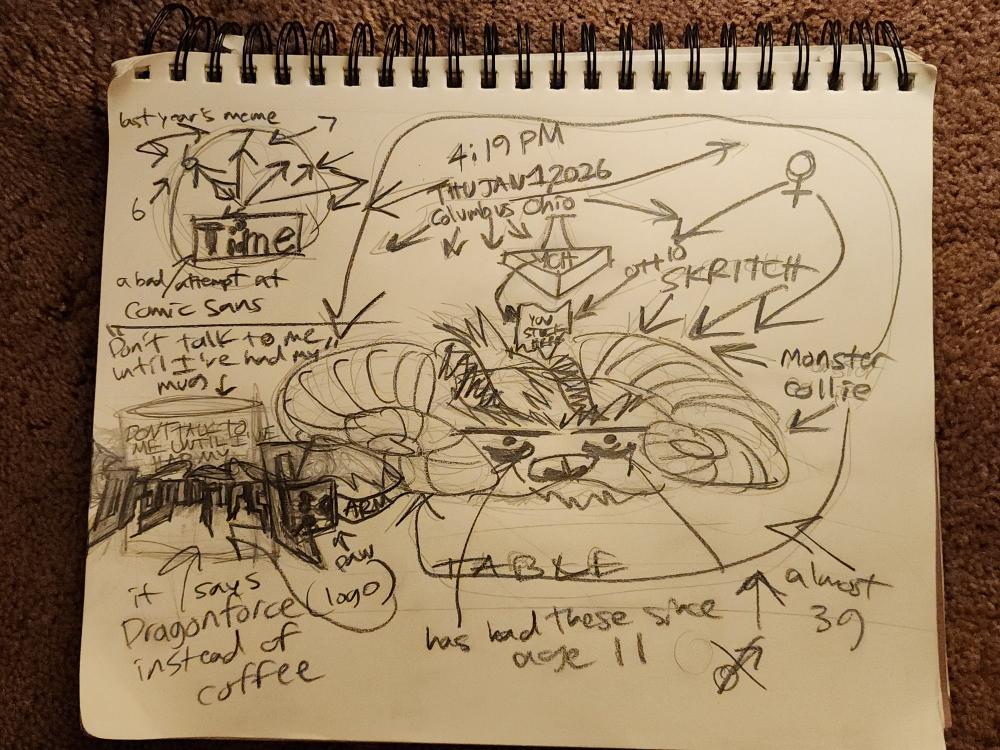 last year's meme
7
6
Time
a bad attempt at
Comic Sans
4:19 PM
THU JAN 1, 2026
Columbus Ohio
♀
SKRITCH
YOU
Monster
collie
Don't talk to me
until I've had my
mug
DON'T TALK TO
ME UNTIL I'VE
HAD MY
ARM
paw
(logo)
TABLE
it says
Dragonforce
instead of
coffee
has had these since
age 11
almost
39